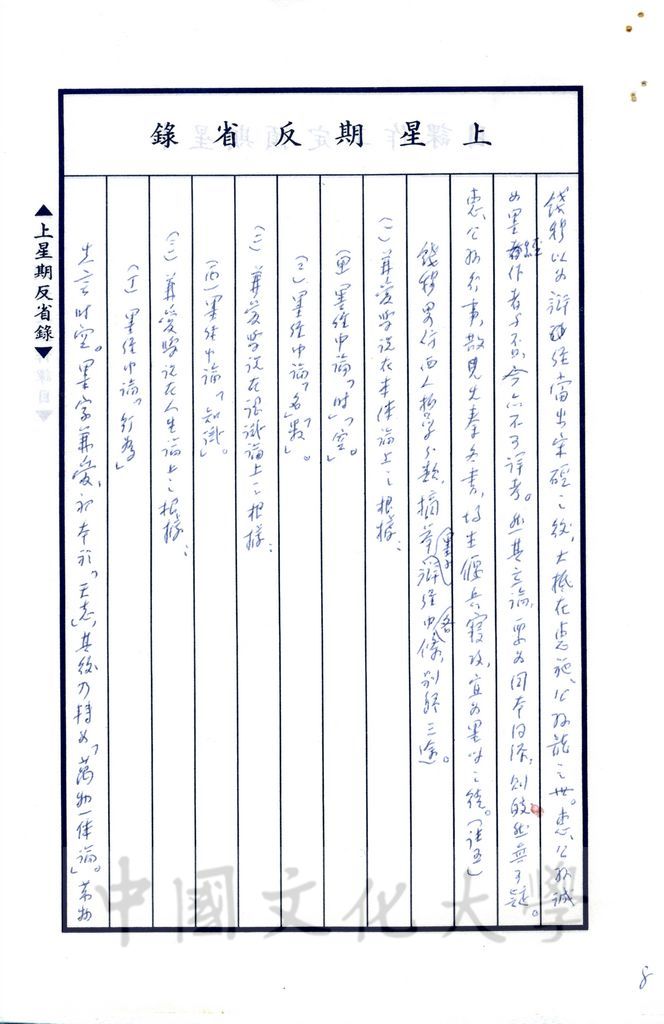 上星期反省錄
錢穆以為辯經當出宋硜之後,大抵在惠施、公孫龍之世。惠、公孫誠
為墨經作者與否,今亦不可詳考。然其立論,要為同本同源,則皎然無可疑。
惠、公孫行事,散見先秦各書,均主偃兵寢攻,宜為墨學之徒。(註五)
錢穆略仿西人哲學分類,摘举墨子辯經中各條,別繫三途。
(一)兼愛學說在本體論上之根據:
(甲)墨經中論「时」「空」。
(乙)墨經中論「名」「數」。
(二)兼愛學說在認識論上之根據:
(丙)墨經中論「知識」。
(三)兼愛學說在人生論上之根據:
(丁)墨經中論「行為」
先言时空。墨家兼愛,初本於「天志」,其後乃轉為「萬物一体論」。萬物
▲上星期反省錄▼
中國文化大學
8